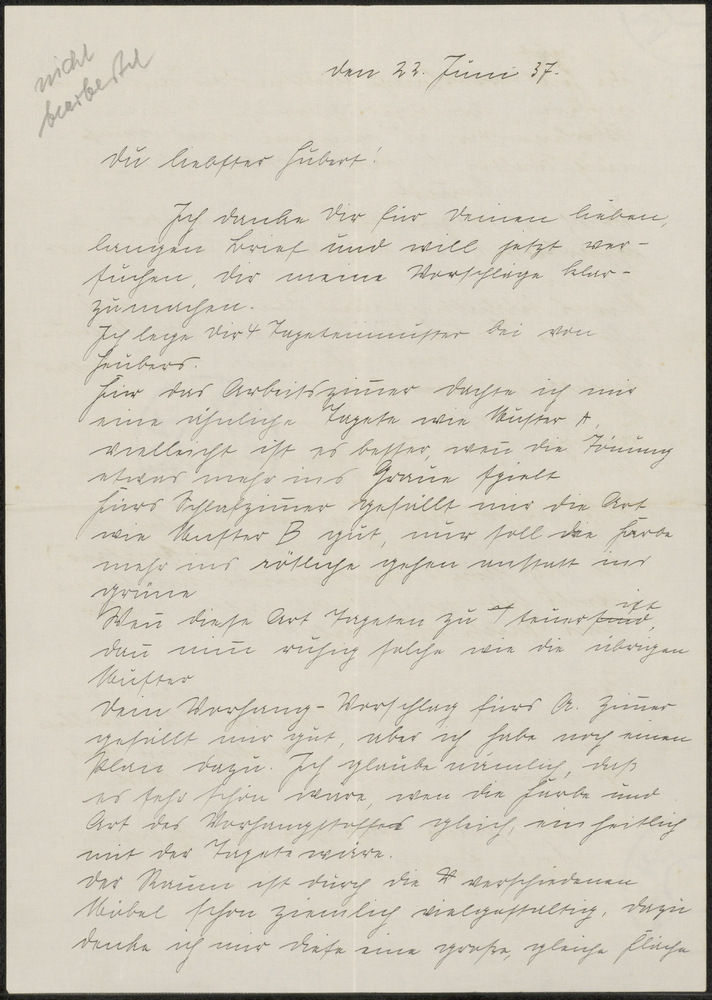 nicht
bearbeitet
den 22. Juni 37.
Du liebster Hubert!
Ich danke Dir für Deinen lieben,
langen Brief und will jetzt ver-
suchen, Dir meine Vorschläge klar-
zumachen.
Ich lege Dir 4 Tapetenmuster bei von
Für das Arbeitszim̅er dachte ich mir
eine ähnliche Tapete wie Muster A,
vielleicht ist es besser, wen̅ die Tönung
etwas mehr ins Graue spielt
Fürs Schlafzim̅er gefällt mir die Art
wie Muster B gut, nur soll die Farbe
mehr ins rötliche gehen anstatt ins
grüne
Wen̅ diese Art Tapeten zu teuer sind ist,
dan̅ nim̅ ruhig solche wie die übrigen
Muster
Dein Vorhang-Vorschlag fürs A. Zim̅er
gefällt mir gut, aber ich habe noch einen
Plan dazu. Ich glaube nämlich, daß
es sehr schön wäre, wen̅ die Farbe und
Art des Vorhangstoffes gleich, einheitlich
mit der Tapete wäre.
Der Raum ist durch die 4 verschiedenen
Möbel schon ziemlich vielgestaltig, dazu
denke ich mir diese eine große, gleiche Fläche